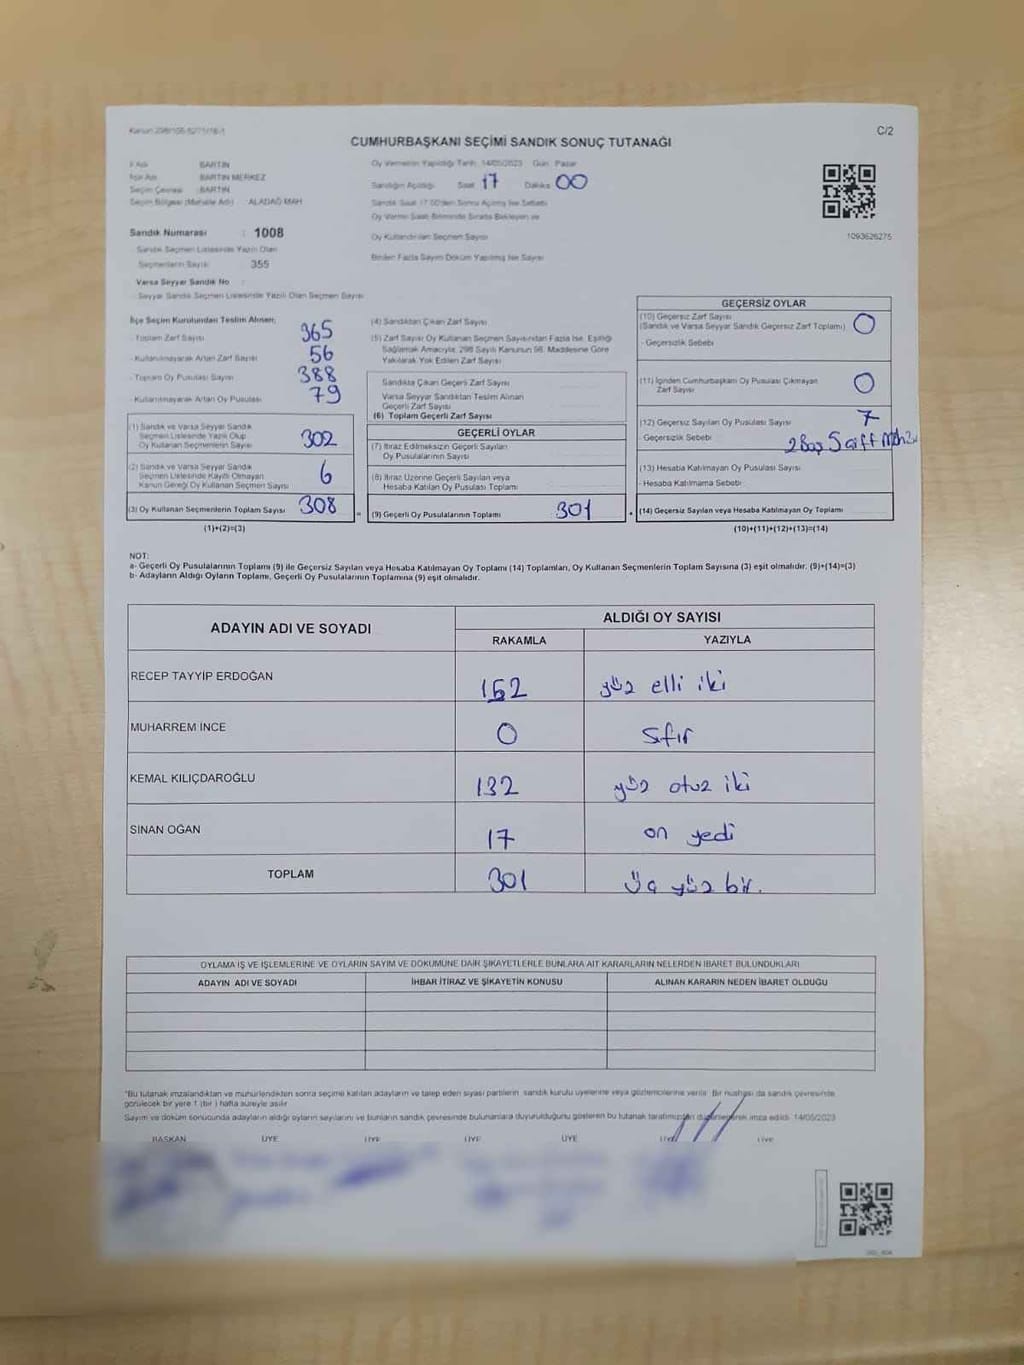 Kanun 298/105-5271/16-1
C/2
CUMHURBAŞKANI SEÇİMİ SANDIK SONUÇ TUTANAĞI
İl Adı : BARTIN
İlçe Adı : BARTIN MERKEZ
Seçim Çevresi : BARTIN
Seçim Bölgesi (Mahalle Adı) : ALADAĞ MAH
Sandık Numarası : 1008
Sandık Seçmen Listesinde Yazılı Olan
Seçmenlerin Sayısı : 355
Varsa Seyyar Sandık No :
Seyyar Sandık Seçmen Listesinde Yazılı Olan Seçmen Sayısı
Oy Vermenin Yapıldığı Tarih 14/05/2023 Gün Pazar
Sandığın Açıldığı Saat 17 Dakika 00
Sandık Saat 17.00'den Sonra Açılmış İse Sebebi
Oy Verme Saati Bitiminde Sırada Bekleyen ve
Oy Kullandırılan Seçmen Sayısı
Birden Fazla Sayım Döküm Yapılmış İse Sayısı
1093626275
İlçe Seçim Kurulundan Teslim Alınan;
- Toplam Zarf Sayısı 365
- Kullanılmayarak Artan Zarf Sayısı 56
- Toplam Oy Pusulası Sayısı 388
- Kullanılmayarak Artan Oy Pusulası 79
(1) Sandık ve Varsa Seyyar Sandık
Seçmen Listesinde Yazılı Olup
Oy Kullanan Seçmenlerin Sayısı 302
(2) Sandık ve Varsa Seyyar Sandık
Seçmen Listesinde Kayıtlı Olmayan
Kanun Gereği Oy Kullanan Seçmen Sayısı 6
(3) Oy Kullanan Seçmenlerin Toplam Sayısı 308
(1)+(2)=(3)
(4) Sandıktan Çıkan Zarf Sayısı
(5) Zarf Sayısı Oy Kullanan Seçmen Sayısından Fazla İse, Eşitliği
Sağlamak Amacıyla, 298 Sayılı Kanunun 98. Maddesine Göre
Yakılarak Yok Edilen Zarf Sayısı
Sandıkta Çıkan Geçerli Zarf Sayısı
Varsa Seyyar Sandıktan Teslim Alınan
Geçerli Zarf Sayısı
(6) Toplam Geçerli Zarf Sayısı
GEÇERLİ OYLAR
(7) İtiraz Edilmeksizin Geçerli Sayılan
Oy Pusulalarının Sayısı
(8) İtiraz Üzerine Geçerli Sayılan veya
Hesaba Katılan Oy Pusulası Toplamı
= (9) Geçerli Oy Pusulalarının Toplamı 301
GEÇERSİZ OYLAR
(10) Geçersiz Zarf Sayısı
(Sandık ve Varsa Seyyar Sandık Geçersiz Zarf Toplamı) 0
- Geçersizlik Sebebi
(11) İçinden Cumhurbaşkanı Oy Pusulası Çıkmayan
Zarf Sayısı 0
(12) Geçersiz Sayılan Oy Pusulası Sayısı 7
Geçersizlik Sebebi 2 Boş 5 çift
(13) Hesaba Katılmayan Oy Pusulası Sayısı
- Hesaba Katılmama Sebebi
+ (14) Geçersiz Sayılan veya Hesaba Katılmayan Oy Toplamı
(10)+(11)+(12)+(13)=(14)
NOT:
a- Geçerli Oy Pusulalarının Toplamı (9) ile Geçersiz Sayılan veya Hesaba Katılmayan Oy Toplamı (14) Toplamları, Oy Kullanan Seçmenlerin Toplam Sayısına (3) eşit olmalıdır. (9)+(14)=(3)
b- Adayların Aldığı Oyların Toplamı, Geçerli Oy Pusulalarının Toplamına (9) eşit olmalıdır.
ADAYIN ADI VE SOYADI
ALDIĞI OY SAYISI
RAKAMLA YAZIYLA
RECEP TAYYİP ERDOĞAN 152 yüz elli iki
MUHARREM İNCE 0 sıfır
KEMAL KILIÇDAROĞLU 132 yüz otuz iki
SİNAN OĞAN 17 on yedi
TOPLAM 301 üç yüz bir.
OYLAMA İŞ VE İŞLEMLERİNE VE OYLARIN SAYIM VE DÖKÜMÜNE DAİR ŞİKAYETLERLE BUNLARA AİT KARARLARIN NELERDEN İBARET BULUNDUKLARI
ADAYIN ADI VE SOYADI İHBAR İTİRAZ VE ŞİKAYETİN KONUSU ALINAN KARARIN NEDEN İBARET OLDUĞU
*Bu tutanak imzalandıktan ve mühürlendikten sonra seçime katılan adayların ve talep eden siyasi partilerin sandık kurulu üyelerine veya gözlemcilerine verilir. Bir nüshası da sandık çevresinde
görülecek bir yere 1 (bir) hafta süreyle asılır
Sayım ve döküm sonucunda adayların aldığı oyların sayılarını ve bunların sandık çevresinde bulunanlara duyurulduğunu gösteren bu tutanak tarafımızdan düzenlenerek imza edildi. 14/05/2023
BAŞKAN ÜYE ÜYE ÜYE ÜYE ÜYE ÜYE